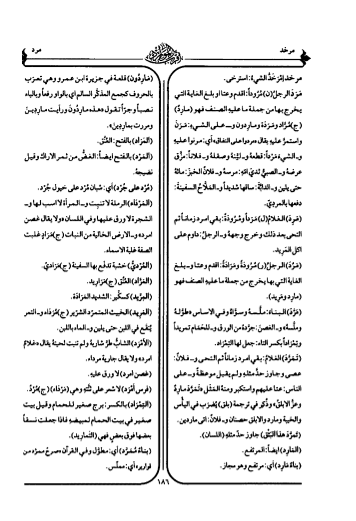 مرخد
مرد
مرخد اِمْرَخَدَّ الشيءُ: استرخى.
مَرَدَ الرجلُ(ن) مُرُوداً: اقدم وعتا او بلغ الغاية التي
يخرج بها من جملة ما عليهِ الصنف فهو (مارِدٌ)
(ج)مُرَّاد ومَرَدَة وماردون و_على الشيءِ: مَرَن
واستمرَّ عليهِ يقال مردوا على النفاق اي: مرنوا عليهِ
و_الشيءَ مَرْداً: قطعهُ و_ليَّنهُ وصقلهُ و_فلاناً: مزَّق
عرضهُ و_الصبيُّ ثديَ امهِ: مرسهُ و_فلانٌ الخبزَ: ماثهُ
حتى يلين و_الدابَّةَ: ساقها شديداً و_الملَّاحُ السفينةَ:
دفعها بالمُرديّ.
مَرِدَ الغلامُ(ل) مَرَداً ومُرُودَةً: بقي امرد زماناً ثم
التحى بعد ذلك وخرج وجههُ و_الرجلُ: داوم على
اكل المَرِيد.
مَرُدَ الرجلُ(ر) مُرُودَةً ومَرَادَةً: اقدم وعتا و_بلغ
الغاية التي بها يخرج من جملة ما عليهِ الصنف فهو
(مارد ومريد).
مَرَّدَ البناءَ: ملَّسهُ وسوَّاهُ وفي الاساس «طوَّلهُ
وملَّسهُ» و_الغصنَ: جرَّدهُ من الورق و_للحَمَام تمريداً
وتِمْرَاداً بكسر التاءِ: جعل لها التِمْرَاد.
(تَمَرَّدَ) الغلامُ: بقي امرد زماناً ثم التحى و_فلانٌ:
عصى وجاوز حدَّ مثلهِ ولم يقبل موعظةً و_على
الناس: عتا عليهم واستكبر ومنهُ المَثَل «تَمَرَّدَ ماردٌ
وعزَّ الابلق» وذُكِر في ترجمة (بلق) يُضرَب في اليأس
والخيبة ومارد والابلق حصنان و_فلانٌ: اتى ماردين.
(تَمَرَّدَ هذا البَثْقُ) جاوز حدَّ مثلهِ (اللسان).
(المَارِد) ايضاً: المرتفع.
(بناءٌ مَارِد) اي: مرتفع وهو مجاز.
(مَارِدُون) قلعة في جزيرة ابن عمرو وهي تعرَب
بالحروف كجمع المذكَّر السالم اي بالواو رفعاً وبالياءِ
نصباً وجرّاً تقول «هذهِ ماردُون ورأَيت مارِدِينَ
ومررت بماردِين».
(المَرَاد) بالفتح: العُنُق.
(المَرْد) بالفتح ايضاً: الغضُّ من ثمر الاراك وقيل
نضيجهُ.
(مُرْد على جُرْد) اي: شبان مُرْد على خيول جُرْد.
(المَرْدَاء) الرملة لا تنبت و_المرأَة لا اسب لها و_
الشجرة لا ورق عليها وفي اللسان «ولا يقال غصن
امرد» و_الارض الخالية من النبات (ج) مَرَادٍ غلبت
الصفة غلبة الاسماءِ.
(المُرْدِيّ) خشبة تدفع بها السفينة (ج)مَرَادِيّ.
(المَرَّاد) العُنُق (ج)مَرَارِيد.
(المِرِّيد) كسكّير: الشديد المَرَادَة.
(المَرِيد) الخبيث المتمرّد الشرّير (ج)مُرَدَاء و_التمر
يُنقَع في اللبن حتى يلين و_الماء باللبن.
(الأَمْرَد) الشابُّ طرَّ شاربهُ ولم تنبت لحيتهُ يقال «غلام
امرد» ولا يقال جارية مرداء.
(غصن امرد) لا ورق عليهِ.
(فرس أَمْرَد) لا شعر على ثُنَّتهِ وهي (مَرْدَاء) (ج)مُرْد.
(التِمْرَاد) بالكسر: برج صغير للحمام وقيل بيت
صغير في بيت الحمام لمبيضهِ فاذا جعلت نسقاً
بعضها فوق بعض فهي (التماريد).
(بناءٌ مُمَرَّد) اي: مطوَّل وفي القرآن «صرحٌ ممرَّد من
قوارير» اي: مملَّس.
١٨٦